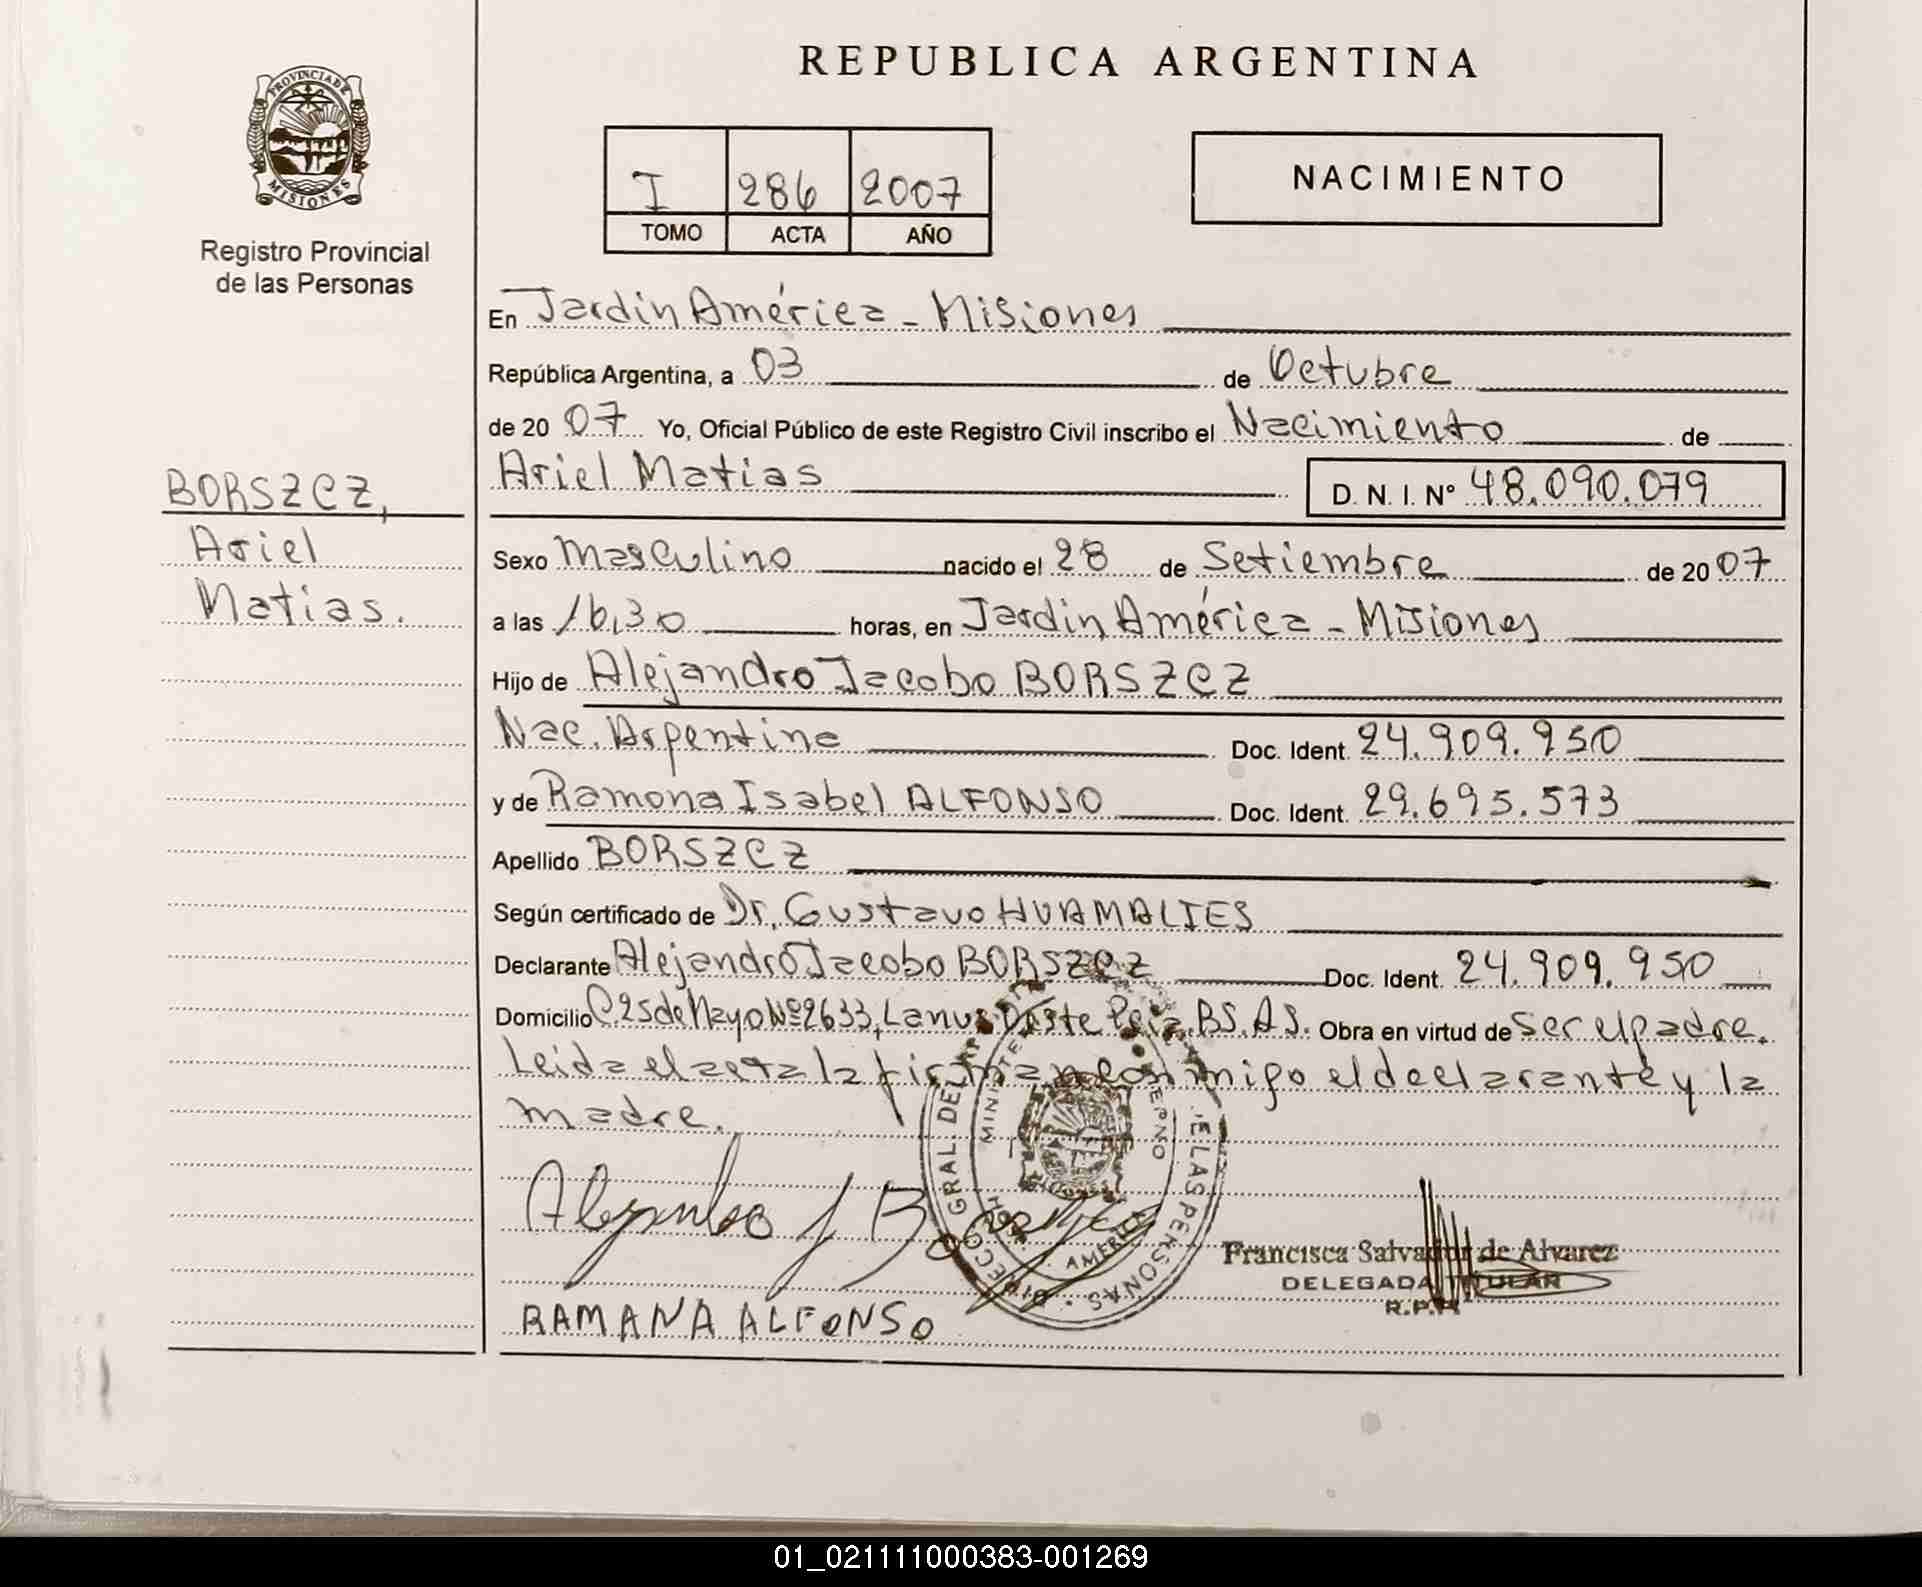 REPUBLICA ARGENTINA
PROVINCIA DE
MISIONES
Registro Provincial
de las Personas
I 286 2007
TOMO ACTA AÑO
NACIMIENTO
En Jardín América - Misiones
República Argentina, a 03 de Octubre
de 20 07 Yo, Oficial Público de este Registro Civil inscribo el Nacimiento de
Ariel Matias D. N. I. Nº 48.090.079
BORSZCZ,
Ariel
Matias.
Sexo Masculino nacido el 28 de Setiembre de 20 07
a las 16,30 horas, en Jardín América - Misiones
Hijo de Alejandro Jacobo BORSZCZ
Nac. Argentina Doc. Ident. 24.909.950
y de Ramona Isabel ALFONSO Doc. Ident. 29.695.573
Apellido BORSZCZ
Según certificado de Dr. Gustavo HUAMALIES
Declarante Alejandro Jacobo BORSZCZ Doc. Ident. 24.909.950
Domicilio C.25 de Mayo Nº2633, Lanus Oeste Pcia. BS.AS. Obra en virtud de ser el padre.
Leida el acta la firman conmigo el declarante y la
madre.
AMERICA
RAMANA ALFONSO
Francisca Salvador de Alvarez
DELEGADA TITULAR
R.P.P.
01_021111000383-001269